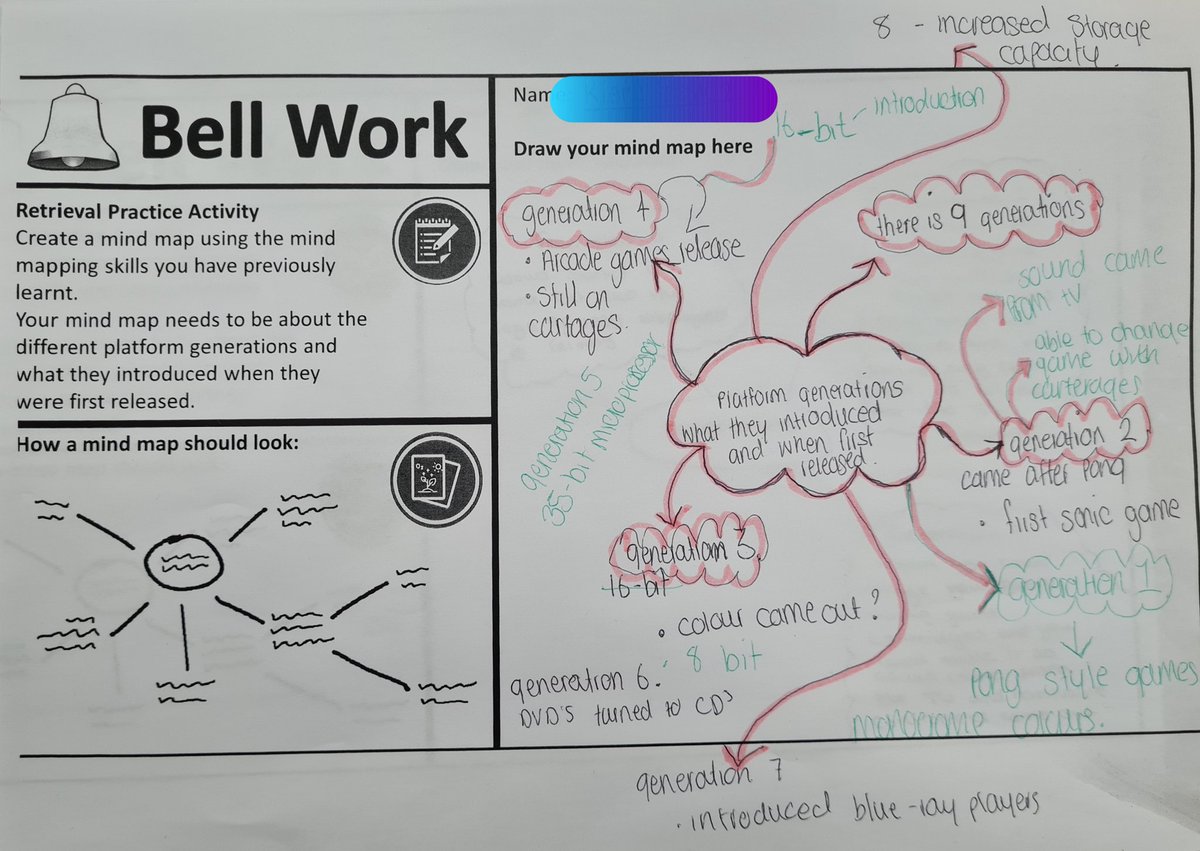 8 - increased storage
capacity.
Bell Work
Retrieval Practice Activity
Create a mind map using the mind
mapping skills you have previously
learnt.
Your mind map needs to be about the
different platform generations and
what they introduced when they
were first released.
How a mind map should look:
Nam
Draw your mind map here
16-bit introduction
generation 4
• Arcade games release
• Still on
cartages.
there is 9 generations
sound came
from tv
able to change
game with
carterages
generation 2
came after pong
• first sonic game
Platform generations
what they introduced
and when first
released.
generation 5
35-bit microprocessor
generation 3
16-bit
• colour came out?
8 bit
generation 1
pong style games
monocrome colours.
generation 6:
DVD'S turned to CD'S
generation 7
• introduced blue-ray players